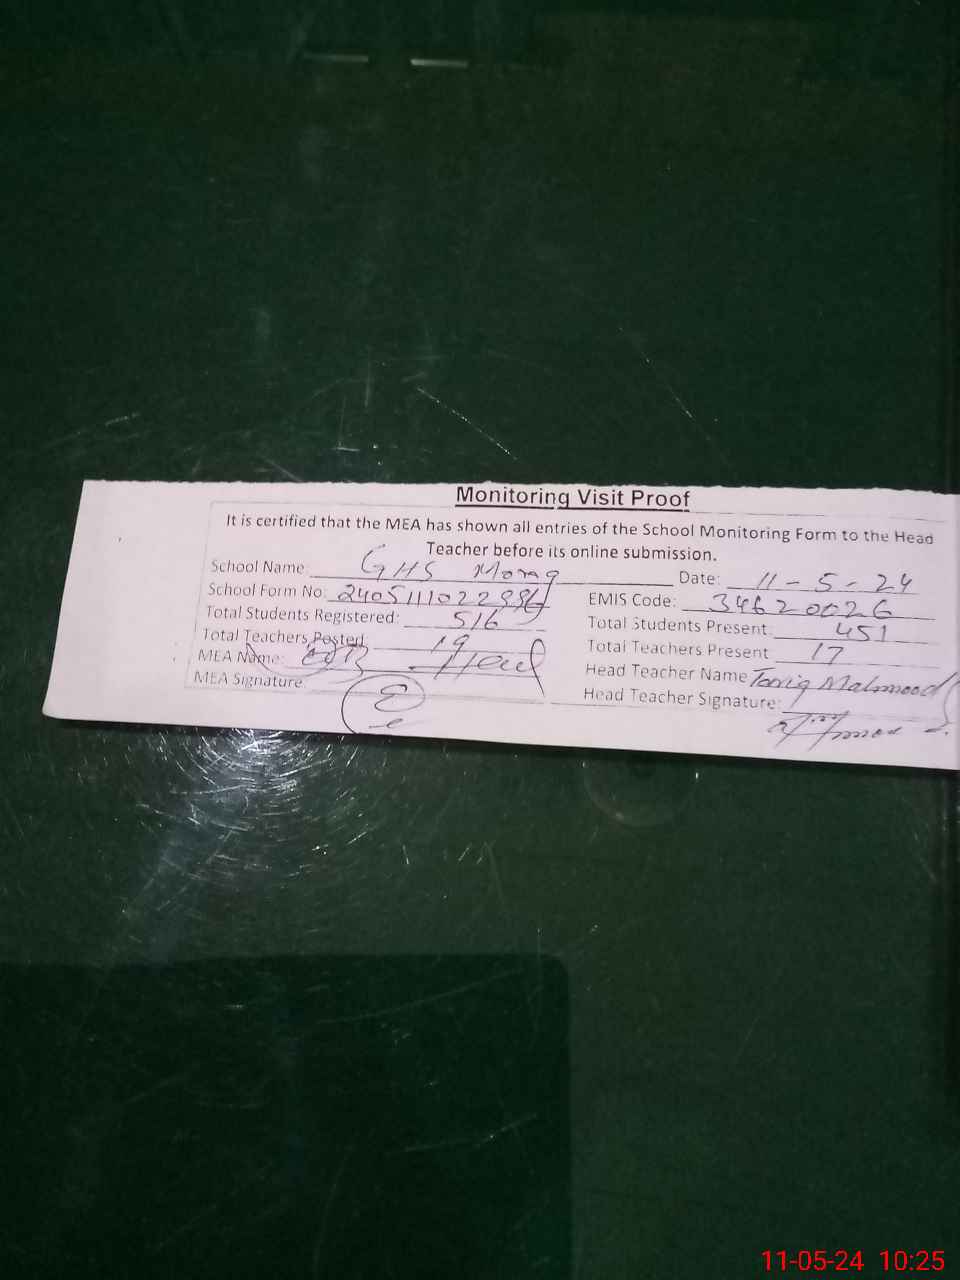 Monitoring Visit Proof
It is certified that the MEA has shown all entries of the School Monitoring Form to the Head
Teacher before its online submission.
School Name: GHS Mong Date: 11-5-24
School Form No: EMIS Code: 34620026
Total Students Registered: 516 Total Students Present: 451
Total Teachers Posted: 19 Total Teachers Present 17
MEA Name: Head Teacher Name Tariq Mahmood
MEA Signature: Head Teacher Signature:
11-05-24 10:25